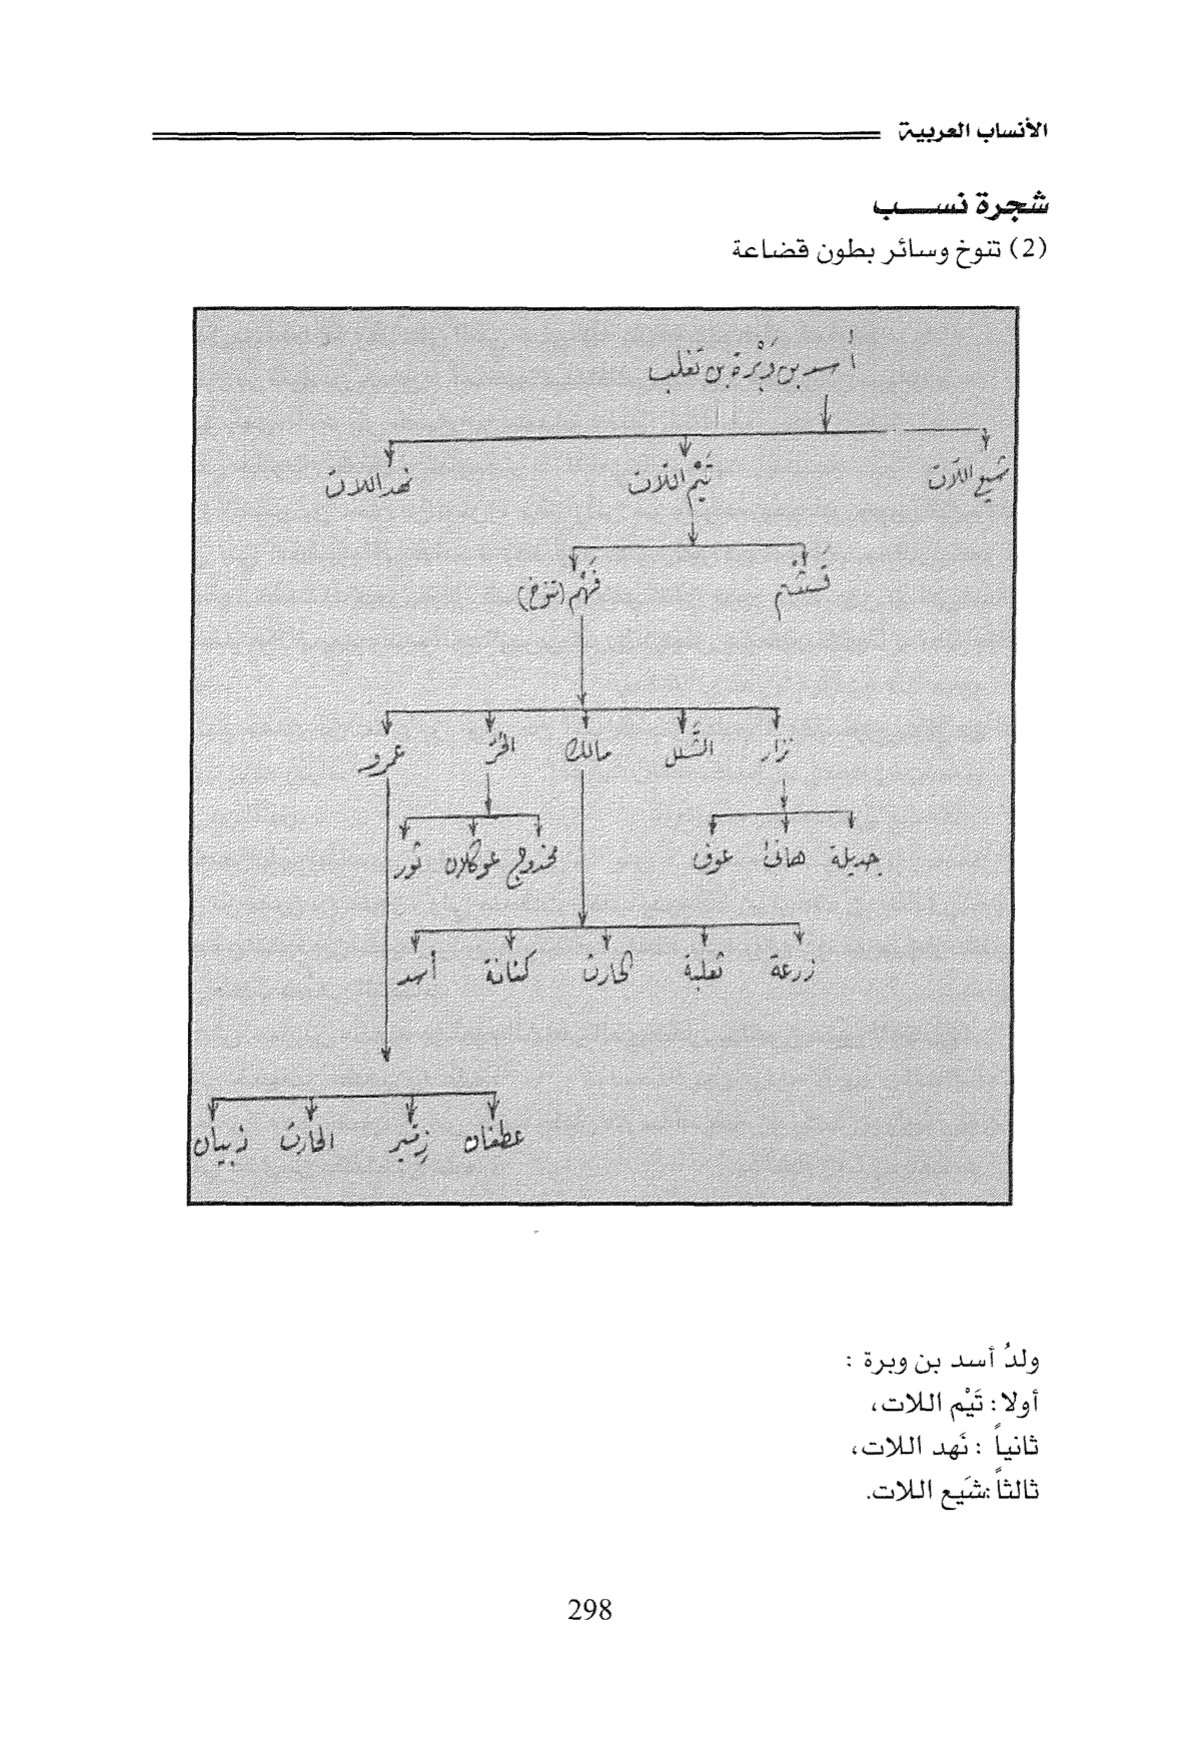 الأنساب العربية
شجرة نســـب
(2) تنوخ وسائر بطون قضاعة
أسد بن وَبْرة بن تغلب
شيع اللّات تَيْم اللّات نهد اللات
فَهْم (تنوخ)
نزار مالك الحُرّ عمرو
جديلة هانئ عوف عوكلان ثور
زرعة ثعلبة الحارث كنانة أسد
الحارث ذبيان
ولدُ أسد بن وبرة :
أولا: تَيْم اللات،
ثانياً : نَهد اللات،
ثالثاً :شَيع اللات.
298